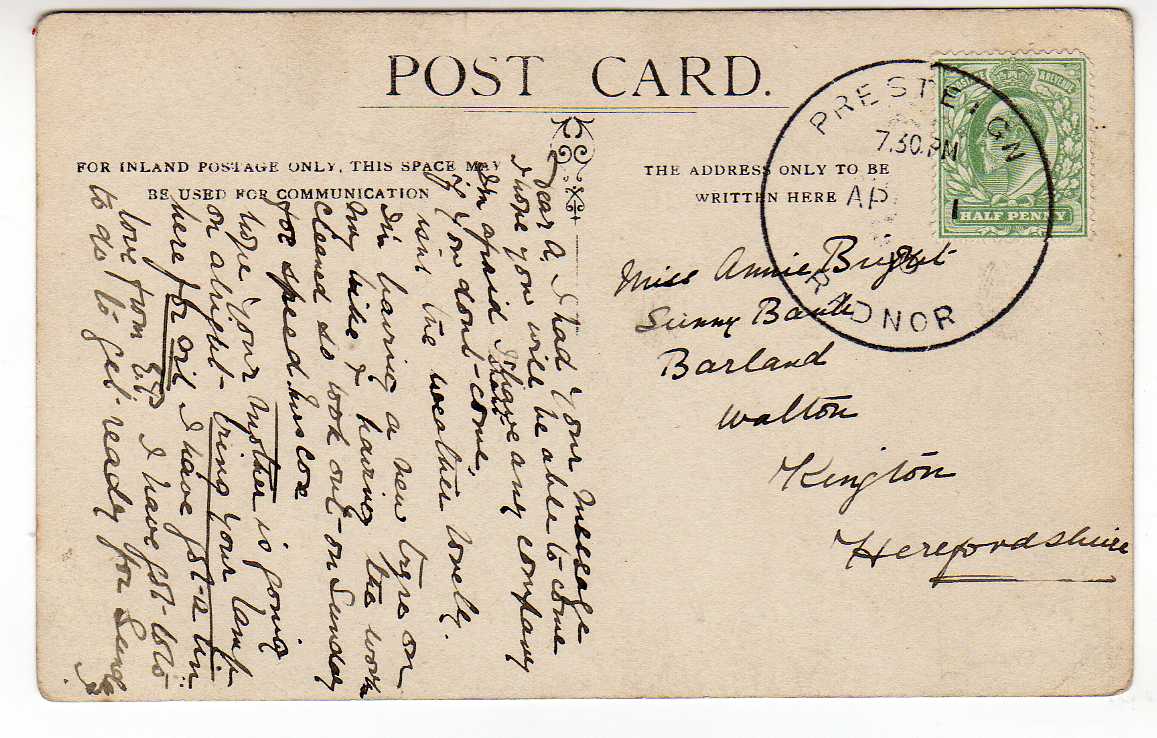 POST CARD.
FOR INLAND POSTAGE ONLY, THIS SPACE MAY
BE USED FOR COMMUNICATION
THE ADDRESS ONLY TO BE
WRITTEN HERE
PRESTEIGN
7.30.PM
AP 1
RADNOR
POSTAGE & REVENUE
HALF PENNY
Miss Annie Bright
Sunny Bank
Barland
Walton
Kington
Herefordshire
Dear A, I had your message
I hope you will be able to come
I'm afraid I shant have any company
if you dont come,
isnt the weather lovely.
I'm having a new tyre on
my bike & having the works
cleaned so look out on Sunday
for speed
hope your Mother is going
on alright - bring your lamp
here for oil I have got a tin
love from I have got lots
to do to get ready for Sunday